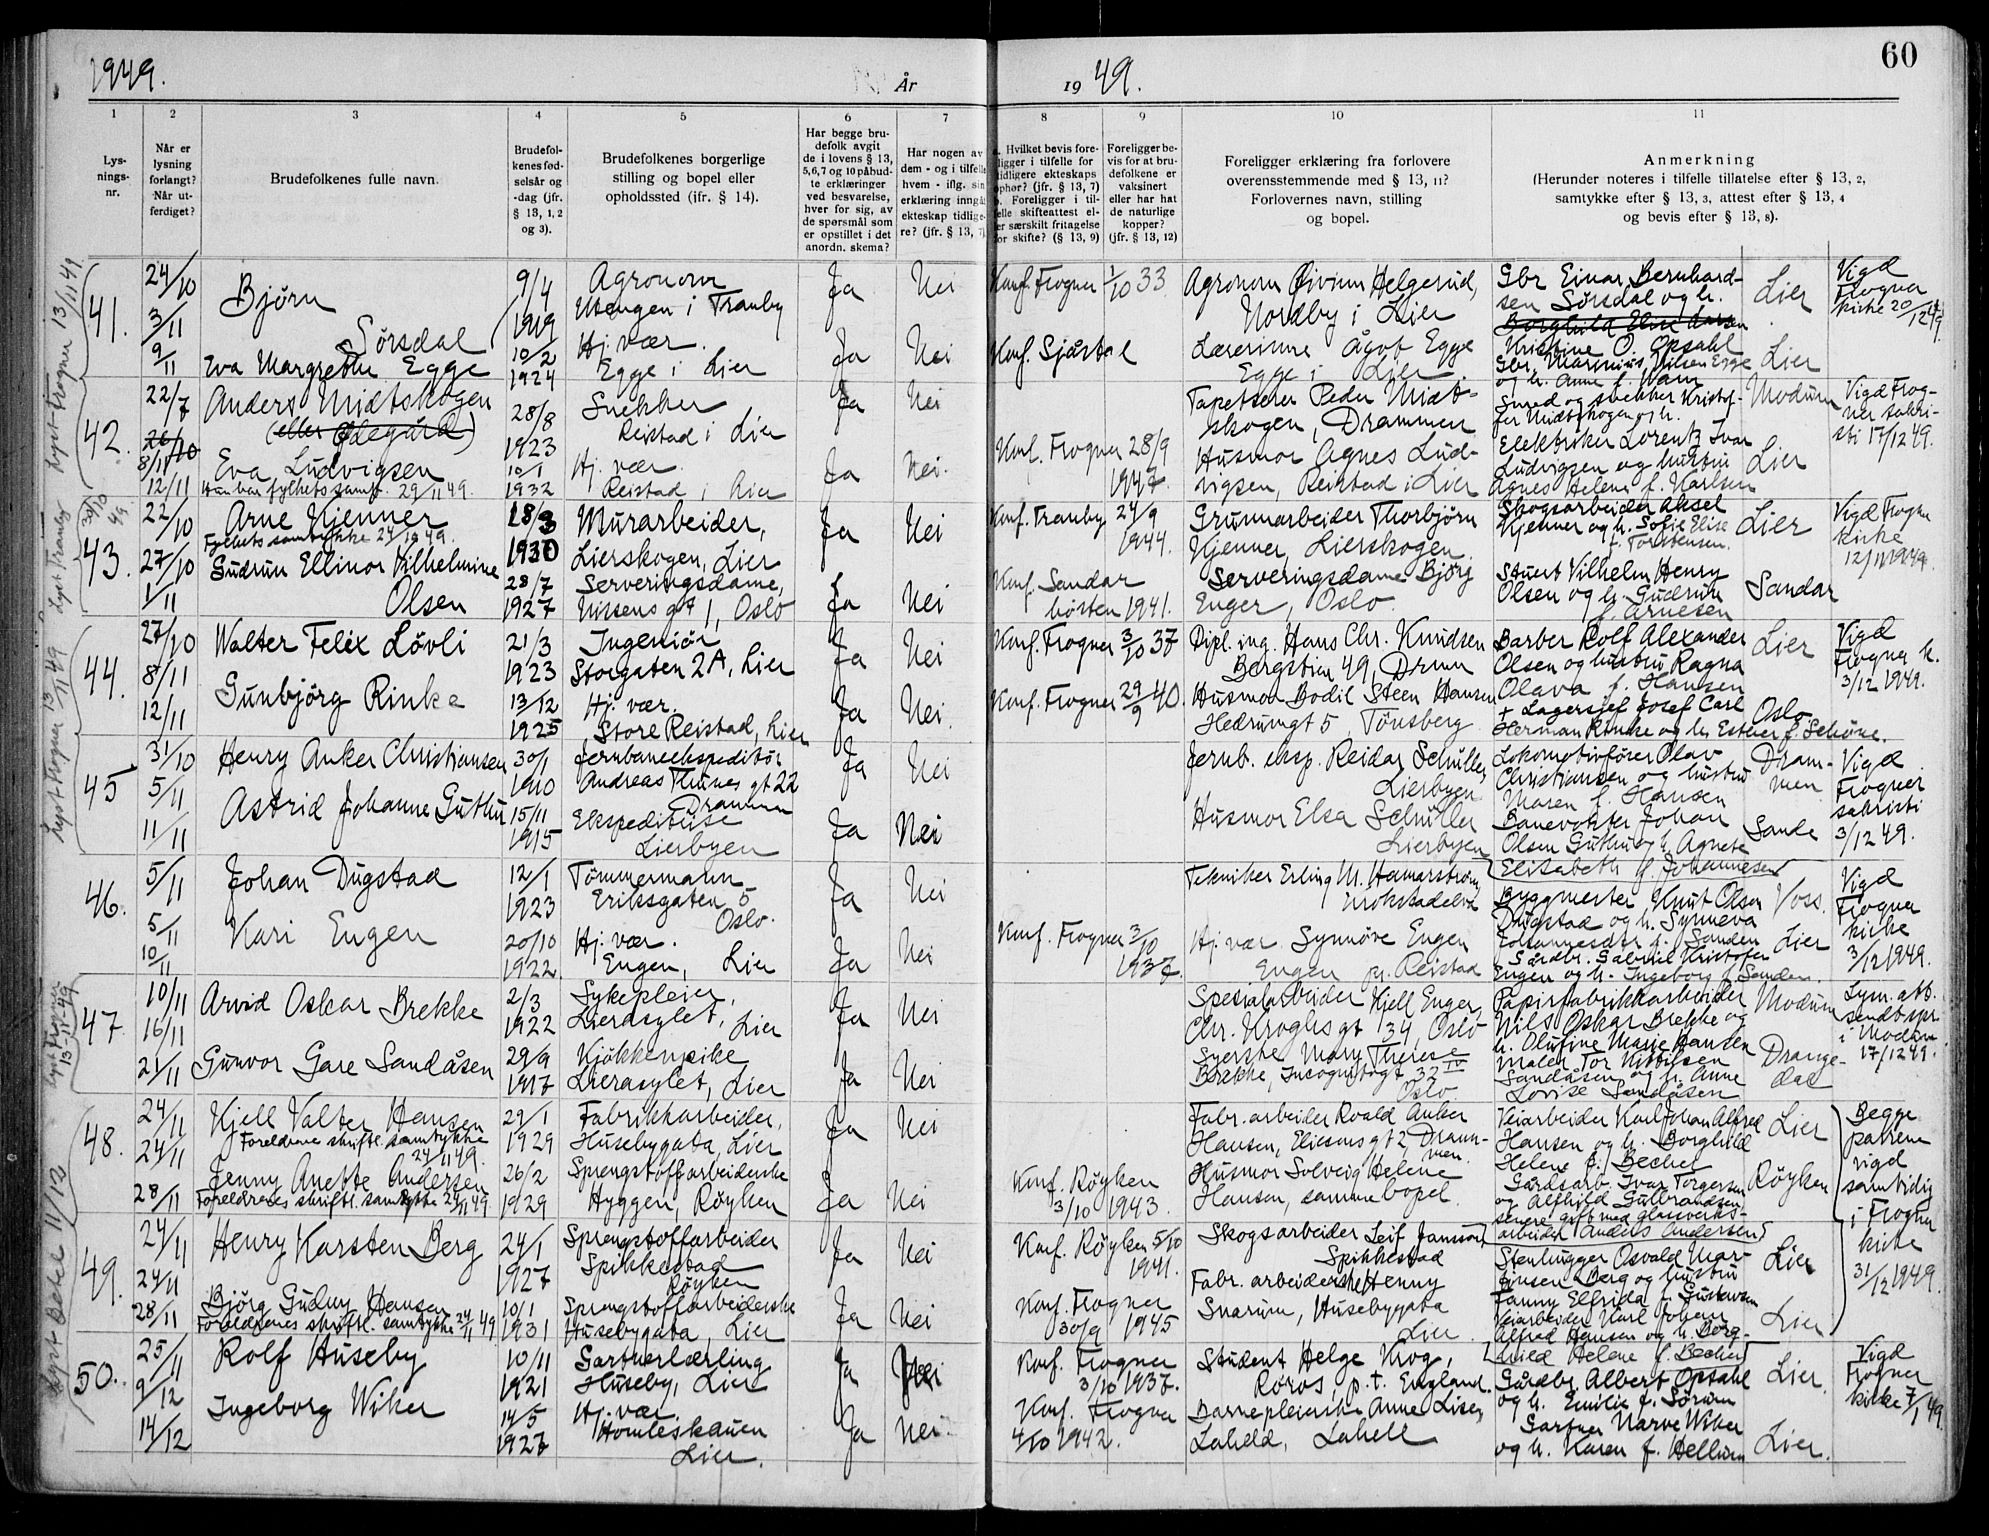 1949.
År
19 49.
60
1
2
3
4
5
6
7
8
9
10
11
Lys-
nings-
nr.
Når er
lysning
forlangt?
Når ut-
ferdiget?
Brudefolkenes fulle navn.
Brudefol-
kenes fød-
selsår og
-dag (jfr.
§ 13, 1, 2
og 3).
Brudefolkenes borgerlige
stilling og bopel eller
opholdssted (jfr. § 14).
Har begge bru-
defolk avgit
de i lovens § 13,
5, 6, 7 og 10 påbud-
te erklæringer
ved besvarelse,
hver for sig, av
de spørsmål som
er opstillet i det
anordn. skema?
Har nogen av
dem - og i tilfelle
hvem - iflg. sin
erklæring inngåt
ekteskap tidlige-
re? (jfr. § 13, 7)
a. Hvilket bevis fore-
ligger i tilfelle for
tidligere ekteskaps
ophør? (jfr. § 13, 7)
b. Foreligger i til-
felle skifteattest el-
ler særskilt fritagelse
for skifte? (§ 13, 9)
Foreligger be-
vis for at bru-
defolkene er
vaksinert
eller har hat
de naturlige
kopper?
(jfr. § 13, 12)
Foreligger erklæring fra forlovere
overensstemmende med § 13, 11?
Forlovernes navn, stilling
og bopel.
Anmerkning
(Herunder noteres i tilfelle tillatelse efter § 13, 2,
samtykke efter § 13, 3, attest efter § 13, 4
og bevis efter § 13, 8).
lyst Frogner 13/11 49
41.
24/10
3/11
9/11
Bjørn
Sørsdal
9/4
1919
Agronom
Utengen i Tranby
Ja
Nei
Konf. Frogner 1/10 33
Agronom Øivinn Helgerud,
Nordby i Lier
Gbr Einar Bernhard-
sen Sørsdal og h.
Borghild Elise Larsen
Kristine O. Opsahl
Lier
Vigd
Frogner
kirke 20/12 49.
Eva Margrethe Egge
10/2
1924
Hj. vær.
Egge i Lier
Ja
Nei
Konf. Sjåstad
Lærerinne Ågot Egge
Egge i Lier
Gbr. Marinius Nilsen Egge
og h. Anne f. Wam
Lier
42.
22/7
26/10
8/11
12/11
Anders Midtskogen
(eller Ødegård)
28/8
1923
Snekker
Reistad i Lier
Ja
Nei
Tapetserer Peder Midt-
skogen, Drammen
Smed og snekker Kristof-
fer Midtskogen og h.
Modum
Vigd Frog-
ner sakri-
sti 17/12 49.
Eva Ludvigsen
Hun har fylkets samt. 29/11 49.
10/1
1932
Hj. vær.
Reistad i Lier
Ja
Nei.
Konf. Frogner 28/9
1947.
Husmor Agnes Lud-
vigsen, Reistad i Lier
Elektriker Lorentz Ivar
Ludvigsen og hustru
Agnes Helene f. Karlsen
Lier
lyst Tranby 30/10 49
43.
22/10
27/10
1/11
Arne Kjenner
Fylkets samtykke 24/10 49.
18/3
1930
Murarbeider,
Lierskogen, Lier
Ja
Nei
Konf. Tranby 24/9
1944.
Grunnarbeider Thorbjørn
Kjenner, Lierskogen.
Skogsarbeider Aksel
Kjenner og h. Sofie Elise
f. Torstensen.
Lier
Vigd Frogner
kirke
12/11 1949.
Gudrun Ellinor Vilhelmine
Olsen
28/7
1927
Serveringsdame,
Nissens gt 1, Oslo
Ja
Nei
Konf. Sandar
høsten 1941.
Serveringsdame Bjørg
Enger, Oslo.
Stuert Vilhelm Henry
Olsen og h. Gudrun
f. Arnesen
Sandar
lyst Frogner 13/11 49
44.
27/10
8/11
12/11
Walter Felix Løvli
21/3
1923
Ingeniør
Storgaten 2A, Lier
Ja
Nei
Konf. Frogner 3/10 37
Dipl. ing. Hans Chr. Knudsen
Bergstien 49, Drmn
Barber Rolf Alexander
Olsen og hustru Ragna
Olava f. Hansen
Lier
Vigd
Frogner k.
3/12 1949.
Gunbjørg Rinke
13/12
1925
Hj. vær.
Store Reistad, Lier
Ja
Nei.
Konf. Frogner 29/9 40.
Husmor Bodil Steen Hansen
Hedrumgt 5 Tønsberg
+ Lagersjef Josef Carl
Herman Rinke og h. Esther f. Schøne.
Oslo
45
31/10
5/11
11/11
Henry Anker Christiansen
30/1
1910
Jernbaneekspeditør
Andreas Thunes gt 22
Drammen
Ja
Nei
Jernb. eksp. Reidar Schüller
Lierbyen
Lokomotivfører Olav
Christiansen og hustru
Maren f. Hansen
Dram-
men
Vigd
Frogner
sakristi
3/12 49.
Astrid Johanne Guthu
15/11
1915
Ekspeditrise
Lierbyen
Ja
Nei
Husmor Elsa Schüller
Lierbyen
Banevokter Johan
Olsen Guthu og h. Agnete
Elisabeth f. Johannesen
Sande
46.
5/11
5/11
10/11
Johan Dugstad
12/1
1923
Tømmermann
Eriksgaten 5
Oslo.
Ja
Nei
Tekniker Erling M. Hamarstrøm
Byggmester Knut Olsen
Dugstad og h. Synneva
Johannesdtr f. Sanden
Voss.
Vigd
Frogner
kirke
3/12 1949.
Kari Engen
20/10
1922.
Hj. vær.
Engen, Lier
Ja
Nei
Konf. Frogner 3/10
1937.
Hj. vær. Synnøve Engen
Engen pr. Reistad
Gårdbr. Gabriel Kristofer
Engen og h. Ingeborg f. Sanden.
Lier
lyst Frogner
13-11-49
47.
10/11
16/11
21/11
Arvid Oskar Brekke
2/3
1922
Sykepleier,
Lierasylet, Lier
Ja
Nei
Spesialarbeider Kjell Enger,
Chr. Kroghs gt 34, Oslo
Papirfabrikkarbeider
Nils Oskar Brekke og
h. Olufine Marie Hansen
Modum
Lysn. att.
sendt spr.
i Modum
17/12 49.
Gunvor Gare Sandåsen
29/9
1917
Kjøkkenpike
Lierasylet, Lier
Ja
Nei
Syerske Mary Therese
Brekke, Incognitogt 32 IV
Oslo
Maler Tor Kittilsen
Sandåsen og h. Anne
Lovise Sandåsen
Drange-
dal
lyst Betel 11/12
48.
24/11
24/11
28/11
Kjell Valter Hansen
Foreldrene skriftl. samtykke
24/11 49.
29/1
1929
Fabrikkarbeider,
Husebygata, Lier
Ja
Nei
Fabr. arbeider Roald Anker
Hansen, Elicsons gt 2 Dram-
men.
Veiarbeider Karl Johan Alfred
Hansen og h. Borghild
Helene f. Becher
Lier
Begge
parene
vigd
samtidig
i Frogner
kirke
31/12 1949.
Jenny Anette Andersen
Foreldrenes skriftl. samtykke 24/11 49
26/2
1929
Sprengstoffarbeiderske
Hyggen, Røyken
Ja
Nei
Konf. Røyken
3/10 1943.
Husmor Solveig Helene
Hansen, samme bopel.
Gårdsarb. Ivar Torgersen
og Alfhild Gulbrandsen
senere gift med glassverks-
arbeider Anders Andersen
Røyken
49.
24/11
24/11
28/11
Henry Karsten Berg
24/1
1927
Sprengstoffarbeider
Spikkestad
Røyken
Ja
Nei
Konf. Røyken 5/10
1941.
Skogsarbeider Leif Jansson
Spikkestad
Stenhugger Osvald Mar-
tinsen Berg og hustru
Fanny Elfrida f. Gustavsen
Lier
Bjørg Gudny Hansen
Foreldrenes skriftl. samtykke 24/11 49
10/1
1931
Sprengstoffarbeiderske
Husebygata, Lier
Ja
Nei
Konf. Frogner
30/9 1945
Fabr. arbeiderske Henny
Snarum, Husebygata
Lier.
Veiarbeider Karl Johan
Alfred Hansen og h. Borg-
hild Helene f. Becher
Lier
50.
25/11
9/12
14/12
Rolf Huseby
10/11
1921
Gartnerlærling
Huseby, Lier
Ja
Nei
Konf. Frogner
3/10 1937.
Student Helge Krog,
Røros, p.t. England.
Gårdbr. Albert Opsahl
og h. Emilie f. Sørum
Lier.
Vigd
Frogner
kirke 7/1 49.
Ingeborg Wiker
14/5
1927
Hj. vær.
Homleskauen
Lier.
Ja
Nei.
Konf. Frogner
4/10 1942.
Barnepleierske Anne Lise
Lahell, Lahell
Gartner Narve Wiker
og h. Karen f. Hellum
Lier.